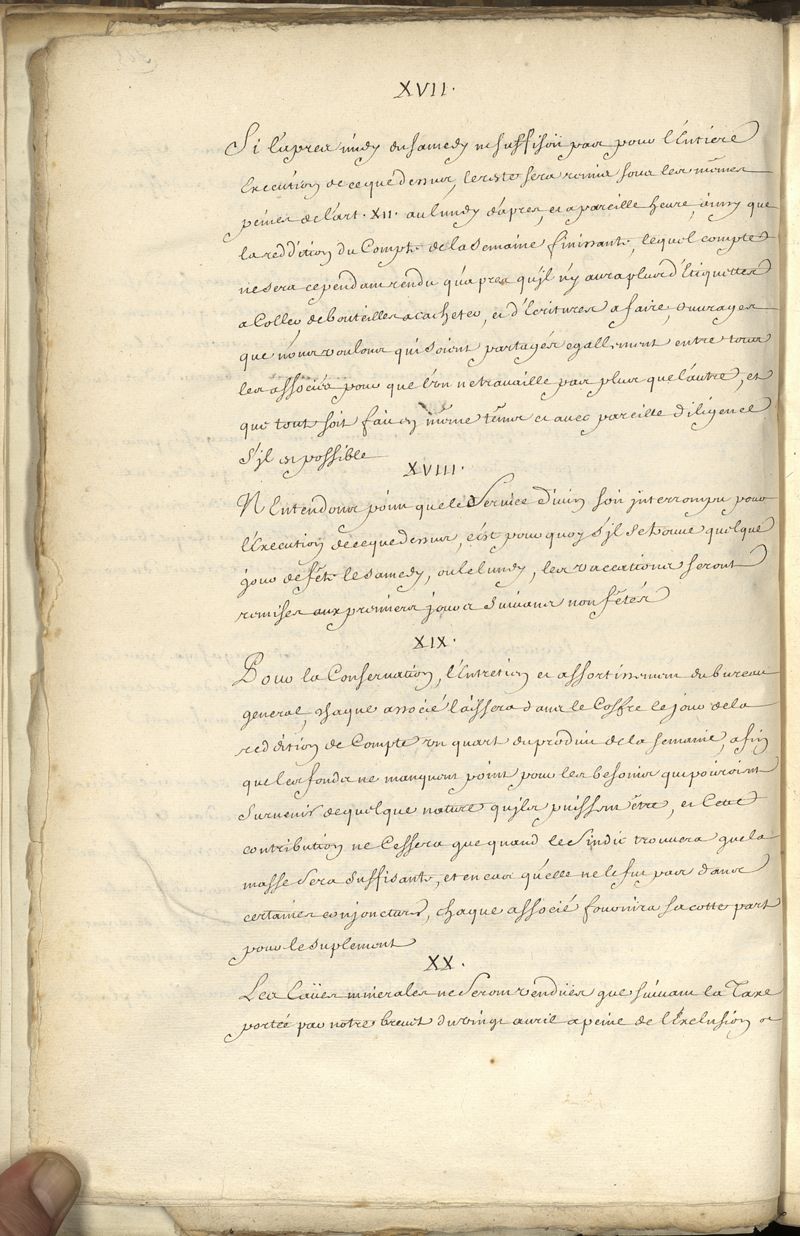 XVII.
Si l'apres midy du samedy ne suffisoit pas pour l'Entiere
Execution de ce que dessus, le reste sera remis sous les mêmes
peines de l'art. XII. au lundy d'apres, et a pareille heure, ainsy que
la reddition du Compte de la semaine finissante, lequel compte
ne sera cependant rendu qu'apres qu'jl n'y aura plus d'Etiquettes
a Coller, de bouteilles a cacheter, et d'Ecritures a faire, ouvrages
que nous voulons qui soient partagés egallement entre tous
les associés pour que l'on ne travaille pas plus que l'autre, et
que tout soit fait en même tems et avec pareille diligence
s'jl est possible
XVIII.
N'Entendons point que le Service divin soit jnterrompu pour
l'Execution de ce que dessus, c'est pourquoy s'jl se trouve quelque
jour de fête le samedy, ou le lundy, les vaccations seront
remises aux premiers jours suivans non fêtés
XIX.
Pour la Conservation, l'Entretien et assortissement du bureau
general, chaque associé laissera dans le Coffre le jour de la
reddition de Compte un quart du produit de la semaine, afin
que les fonds ne manquent point pour les besoins qui pouroient
survenir de quelque nature qu'jls puissent être, et Cette
contribution ne Cessera que quand le Sindic trouvera que la
masse sera suffisante, et en cas qu'elle ne le fut pas dans
certaines conjonctures, chaque associé fournira sa cotte part
pour le suplement
XX.
Les Eaües minerales ne seront vendües que suivant la Taxe
portée par notre brevet du vingt avril a peine de l'Exclusion et